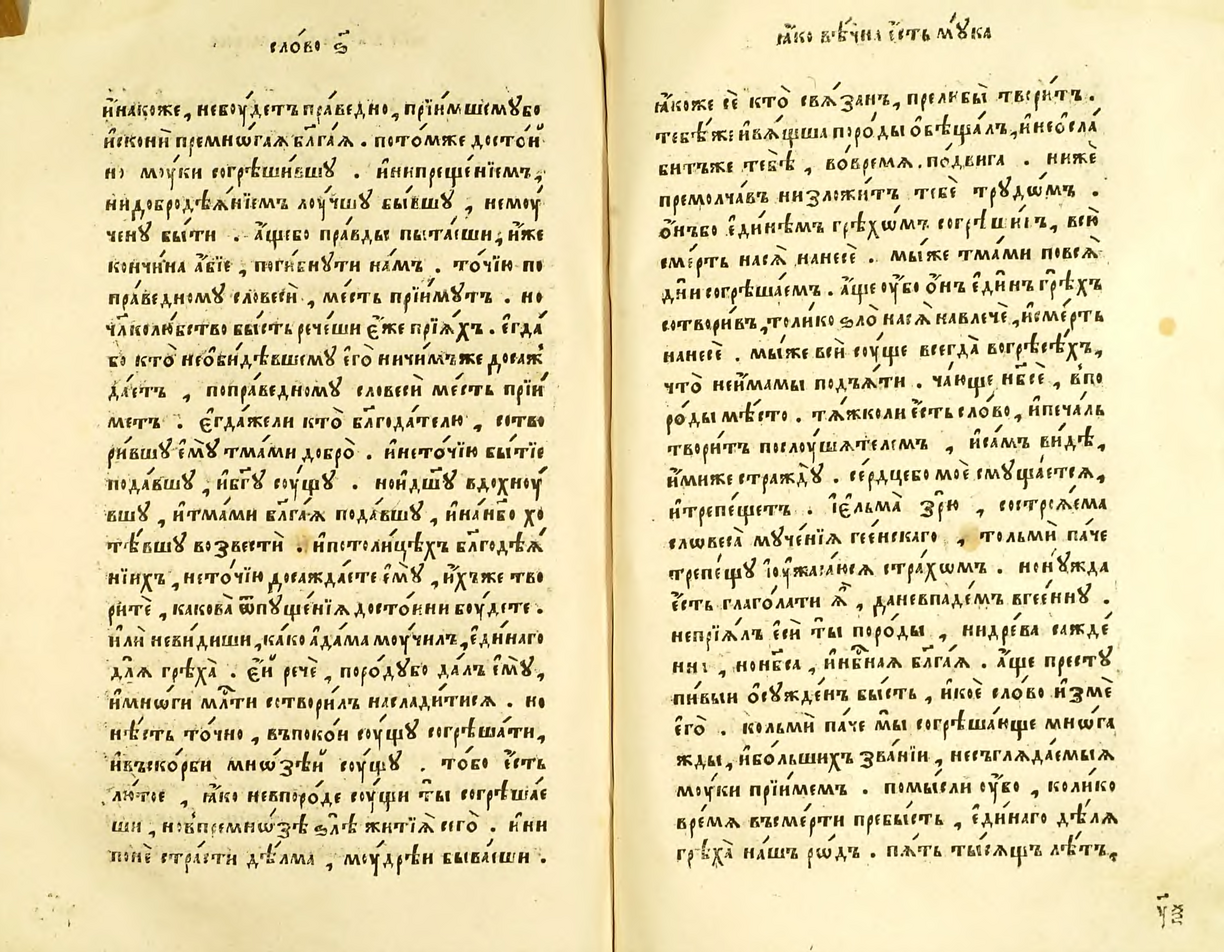 сло́во ѕ҃
и҆накоже, небоу́детъ пра́ведно, прїи́мшемꙋбо
и҆сконѝ премнѡ́гаѧ бл҃га́ѧ . пото́мже досто́й
но моу́ки согрѣши́вшꙋ . и҆нипреще́нїемъ,
нидобродѣѧ́нїемъ лоу́чшꙋ бы́вшꙋ , немоу́
ченꙋ бы́ти . а҆́щебо пра́вды пыта́еши, и҆́же
кончи́на а҆́бїе , поги́бнꙋти на́мъ . то́чїю по
пра́ведномꙋ словесѝ , ме́сть прїи́мꙋтъ . но
чл҃колю́бство бы́сть рече́ши є҆́же прїѧ́хъ . є҆гда́
бо кто̀ неѻ҆би́дѣвшемꙋ є҆го̀ ничи́мъже досаж
да́етъ , попра́ведномꙋ словесѝ ме́сть прїи́
метъ . є҆гда́жели кто̀ бл҃года́телю , сотво
ри́вшꙋ є҆мꙋ̀ тма́ми добро̀ . и҆нето́чїю бы́тїе
пода́вшꙋ , и҆бг҃ꙋ соу́щꙋ . но и҆дш҃ꙋ вдохноу́
вшꙋ , и҆тма́ми бл҃га́ѧ пода́вшꙋ , и҆нан҃бо хо
тѣ́вшꙋ возвестѝ . и҆потоли́цѣхъ бл҃годѣѧ́
нїихъ , нето́чїю досажда́ете є҆мꙋ̀ , и҆́хъже тво
ритѐ , какова̀ ѿпꙋще́нїѧ досто́йни боу́дете .
и҆лѝ неви́диши, ка́ко а҆да́ма моу́чилъ, є҆ди́наго
длѧ̀ грѣха̀ . є҆́й речѐ , поро́дꙋбо да́лъ є҆мꙋ̀ ,
и҆мнѡ́ги мл҃ти сотвори́лъ наслади́тисѧ . но
нѣ́сть то́чно , въпоко́и соу́щꙋ согрѣша́ти,
и҆въско́рби мно́зѣй соу́щꙋ . то́бо є҆́сть
лю́тое , ꙗ҆́ко невпоро́де соу́щи ты̀ согрѣша́е
ши , но впремнѡ́зѣ ѕлѣ̀ житїѧ̀ сего̀ . и҆ни
понѐ стра́сти дѣ́лма , моудрѣ́и быва́еши .
ꙗ҆́ко вѣ́чна є҆́сть мꙋ́ка
ꙗ҆́коже сѐ кто̀ свѧ́занъ, прелибы̀ твори́тъ .
тебѣ́же и҆вѧ́щша поро́ды ѻ҆бѣща́лъ, и҆не ѻ҆сла
би́тъже тебѣ̀ , во́времѧ . по́двига . нижѐ
премолча́въ низложи́тъ тебѐ трꙋдѡ́мъ .
ѻ҆́нъбо є҆ди́нѣмъ грѣхѡ́мъ согрѣши́въ, всю̀
сме́рть насѧ̀ нанесѐ . мы́же тма́ми повсѧ̀
дн҃и согрѣша́емъ . а҆́ще оу҆́бо ѻ҆́нъ є҆ди́нъ грѣ́хъ
сотвори́въ, толи́ко ѕло̀ насѧ̀ навлечѐ , и҆сме́рть
нанесѐ . мы́же всѝ соу́ще всегда̀ вогрѣсѣ́хъ,
что̀ неи҆́мамы подъѧ́ти . ча́юще нб҃сѐ , впо
ро́ды мѣ́сто . тѧ́жколи є҆́сть сло́во, и҆печа́ль
твори́тъ послоу́шѧтелемъ , и҆са́мъ ви́дѣ,
и҆́миже стра́ждꙋ . се́рдцебо моѐ смꙋща́етсѧ,
и҆трепе́щетъ . і҆є҆льма̀ зрю̀ , сострое́ма
словеса̀ мꙋче́нїѧ гее́нскаго , тольмѝ па́че
трепе́щꙋ и҆оу҆жаса́юсѧ стра́хѡмъ . но нꙋ́жда
є҆́сть глаго́лати ѧ҆̀ , даневпаде́мъ вгее́ннꙋ .
непрїѧ́лъ є҆сѝ ты̀ поро́ды , нидре́ва сажде́
нна , ноибс҃а , и҆нбн҃аѧ бл҃га́ѧ . а҆́ще престꙋ
пивыи ѻ҆сꙋжде́нъ бы́сть , и҆ко́е сло́во и҆змѐ
є҆го̀ . кольмѝ па́че мы̀ согрѣша́юще мнѡ́га
жды, и҆бо́льшихъ зва́нїи , несъглѧ́даемыѧ
моу́ки прїи́мемъ . помы́сли оу҆́бо , коли́ко
вре́мѧ въсме́рти пребы́сть , є҆ди́наго дѣ́лѧ
грѣха̀ на́шъ рѡ́дъ . пѧ́ть ты́сѧщъ лѣ́тъ,